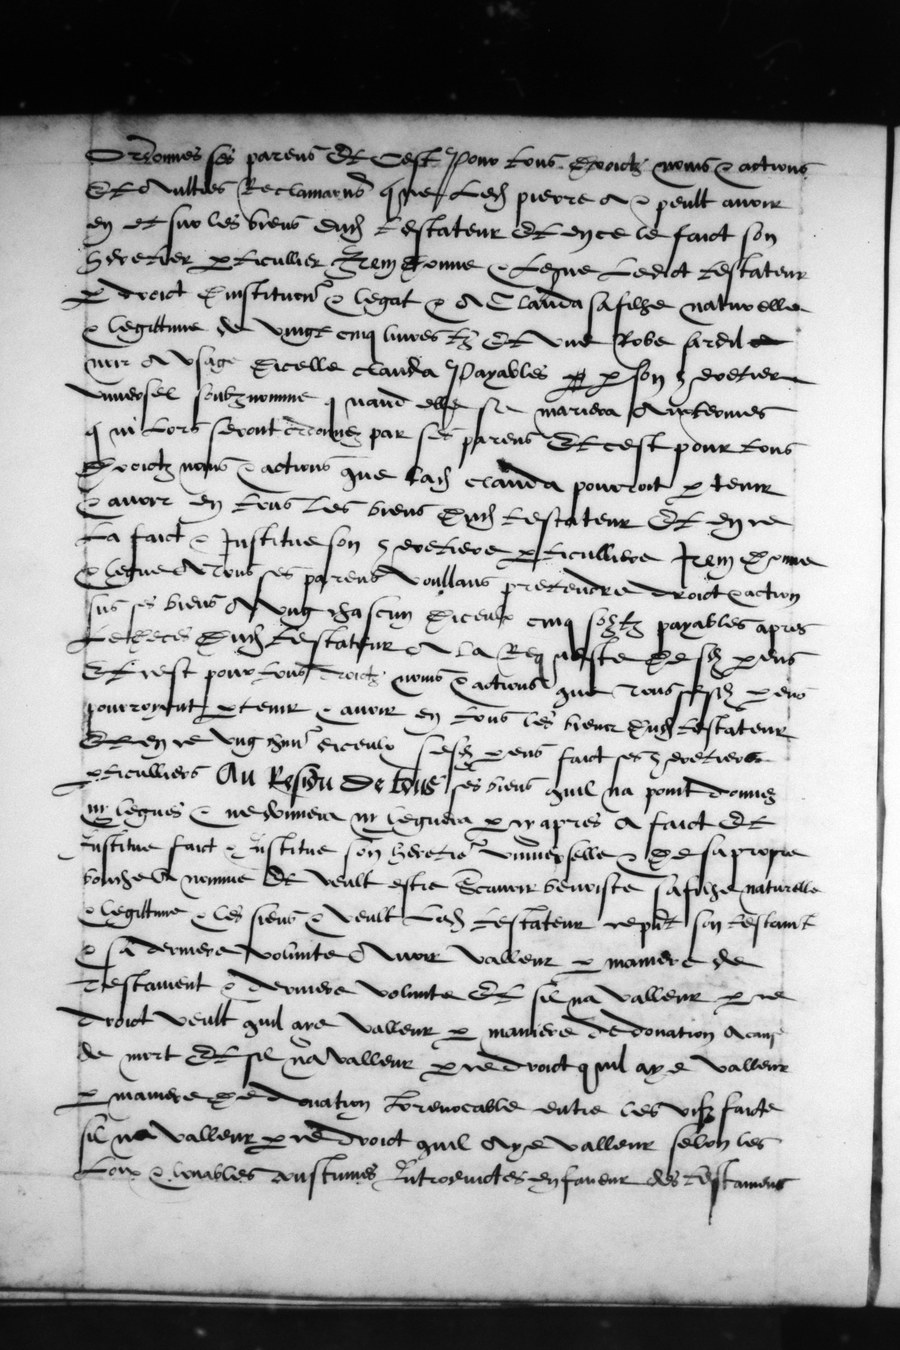 Ordonnes ses parens Et Cest Pour tous droictz noms & actions
Et Aultres Reclamacions que Led pierre A & peult avoir
en et sur les biens dud testateur Et en ce le faict son
heretier particullier Item donne & Legue Ledict testateur
par droict dinstitucion & legat & A Clauda sa filhe naturelle
& legittime de vingt cinq livres tz Et une Robe
noir A usage dicelle clauda Payables par son heretier
universel soubznomme quand elle se mariera Aux termes
qui lors seront ordonnes par ses parens Et cest pour tous
droictz noms & actions que lad clauda pourroit pretenir
& avoir en tous les biens dud testateur Et en ce
La faict & Institue son heretiere particulliere Item donne
& legue A tous ses parens voullans pretendre droict & action
sus ses biens A ung chascun diceulx cinq solz tz payables apres
Le deces dud testateur A La Requeste de sesd parens
Et cest pour tous droictz noms & actions que tous sesd parens
pourroyent pretenir & avoir en tous les biens dud testateur
Et en ce ung chun diceulx sesd parens faict ses heretiers
particulliers Au Residu de tous ses biens quil na point donnes
ny legues & ne donnera ny leguera par cy apres A faict Et
Institue faict & Institue son heretiere universelle & de sa propre
bouche la nomme Et veult estre Scavoir benoiste sa filhe naturelle
& legittime & les siens & veult Led testateur son testament
& sa derniere volunte Avoir valleur par maniere de
Testament & derniere volunte Et sil na valleur par ce
droict veult quil aye valleur par maniere de donation A cause
de mort Et sil na valleur par ce droict quil aye valleur
par maniere de donation Irrevocable entre les vifz faicte
sil na valleur par ce droict quil Aye valleur selon les
Loix & louables coustumes Introduictes en faveur des testamens